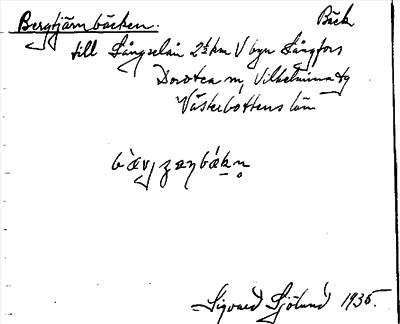 Bergtjärnbäcken. Bäck
till Långselån 2½ km V byn Långfors
Dorotea sn, Vilhelmina tg
Västerbottens län
Sigvard Sjölund 1935.